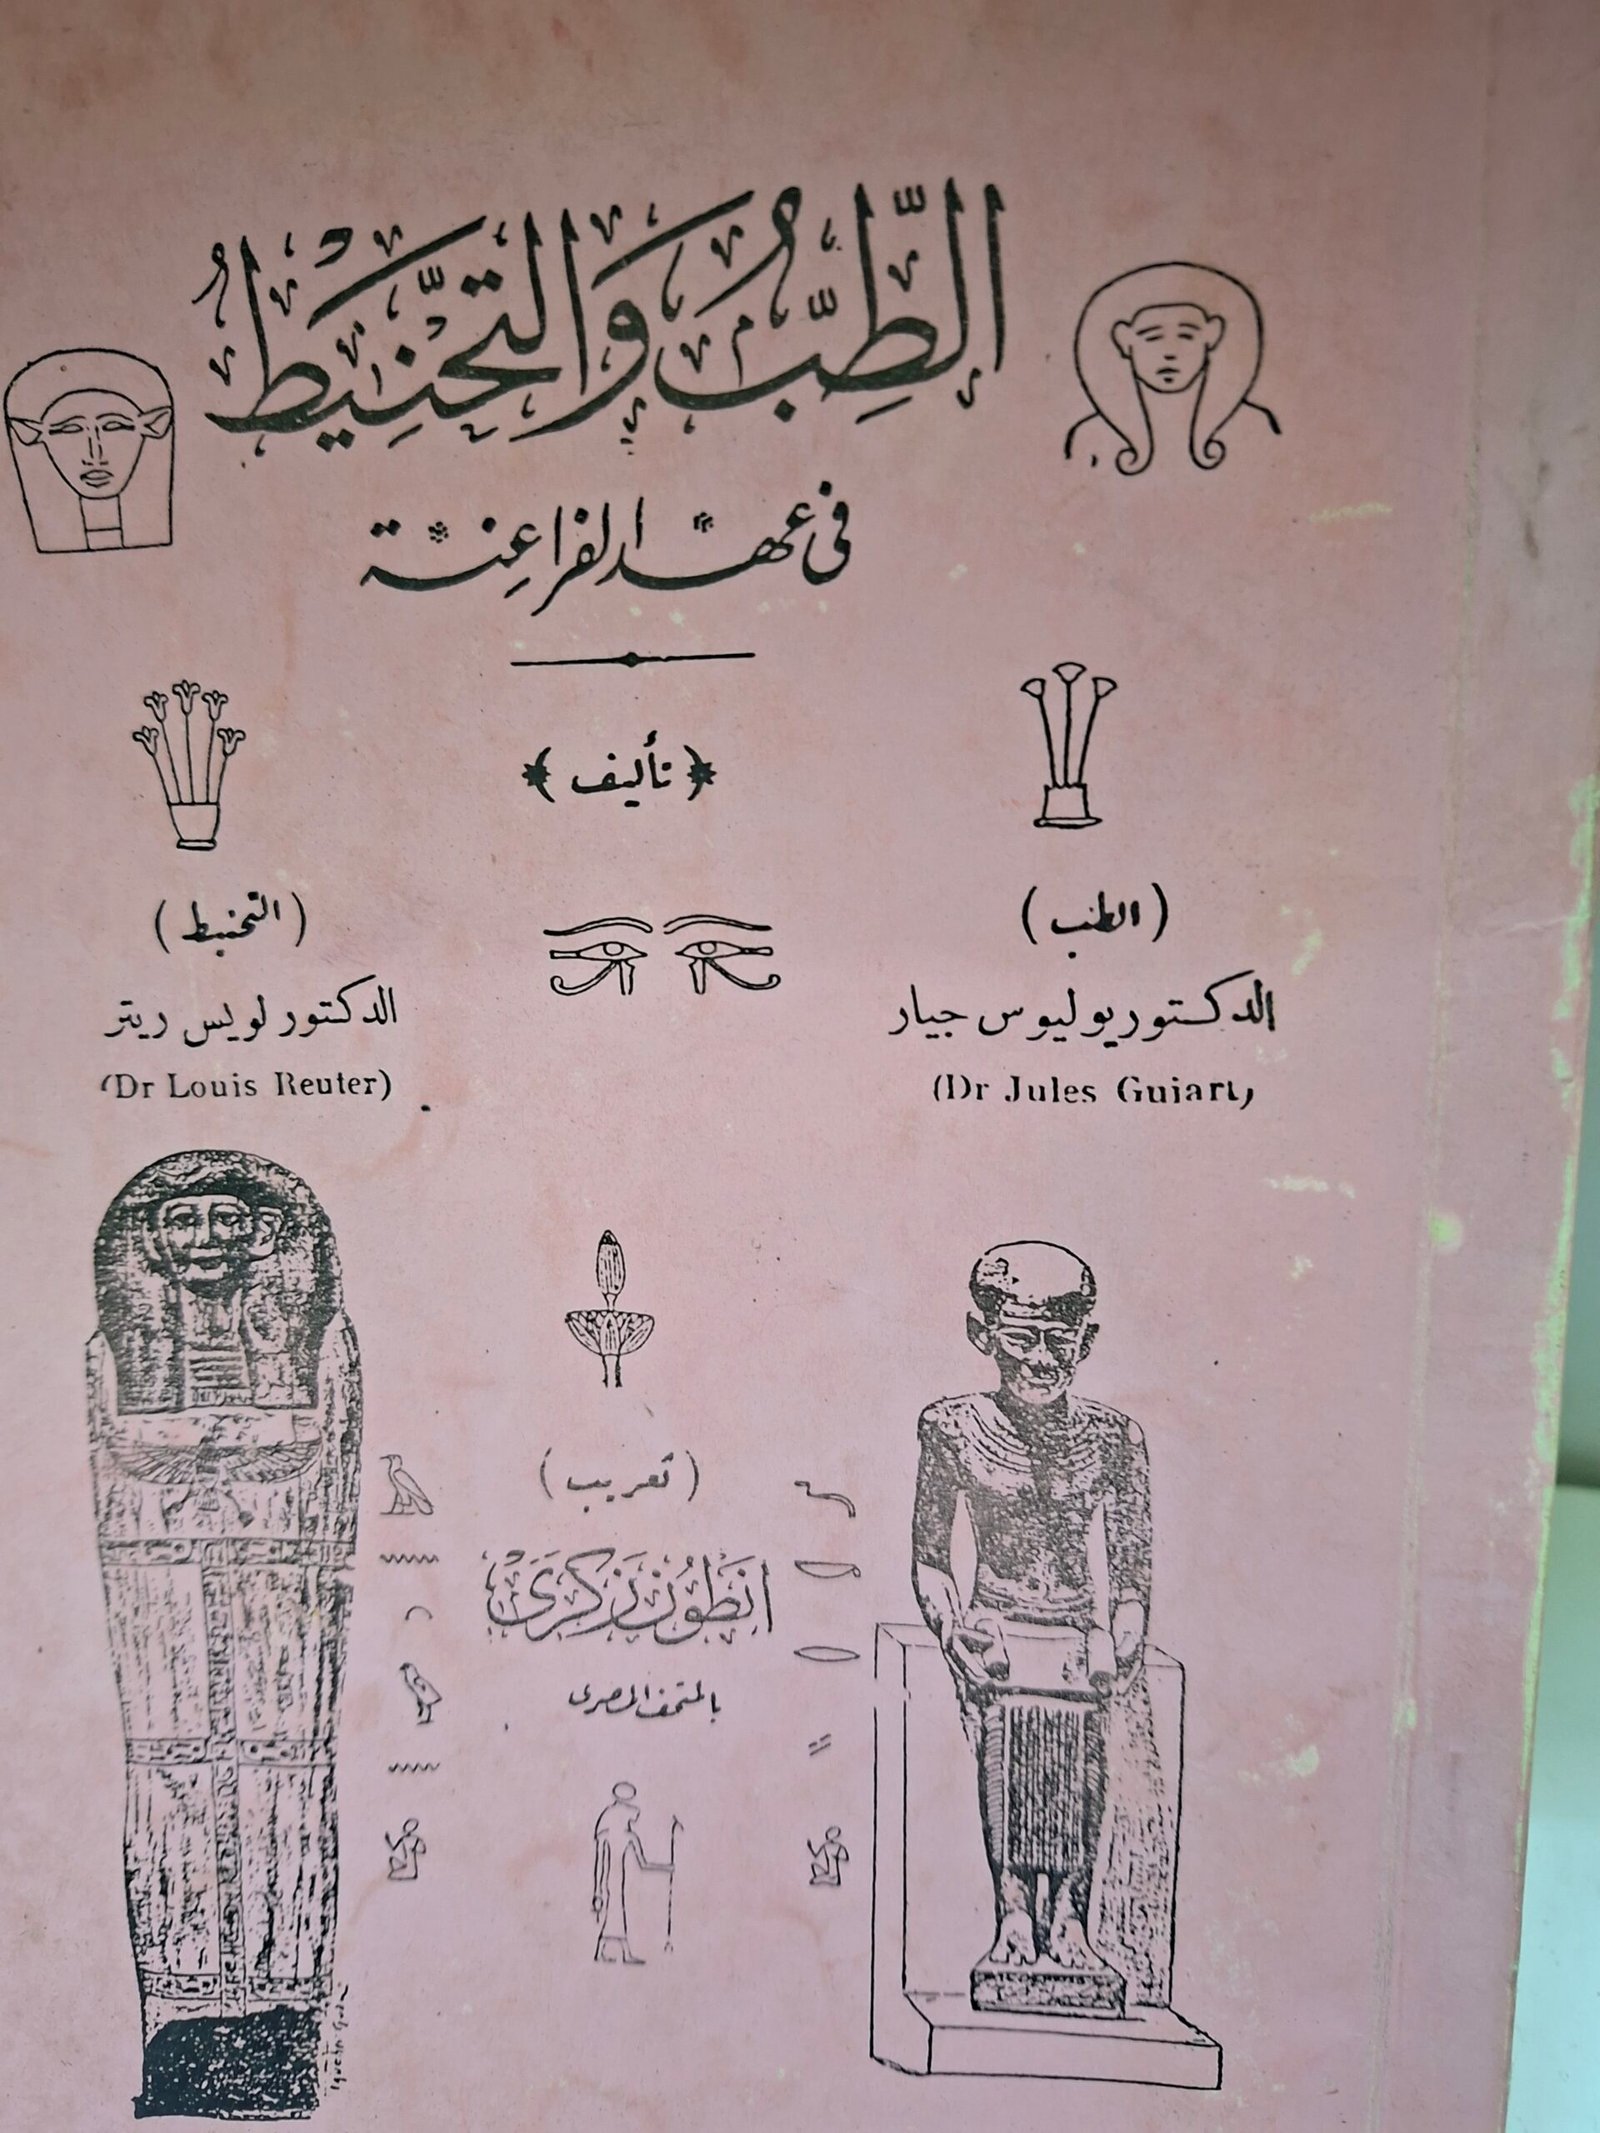 الطِّبُّ وَالتَّحْنِيطُ
في عهد الفراعِنة
﴿ تأليف ﴾
( الطب )
الدكتور يوليوس جيار
(Dr Jules Guiart)
( التحنيط )
الدكتور لويس ريتر
(Dr Louis Reuter)
( تعريب )
انطون زكرى
بالمتحف المصرى